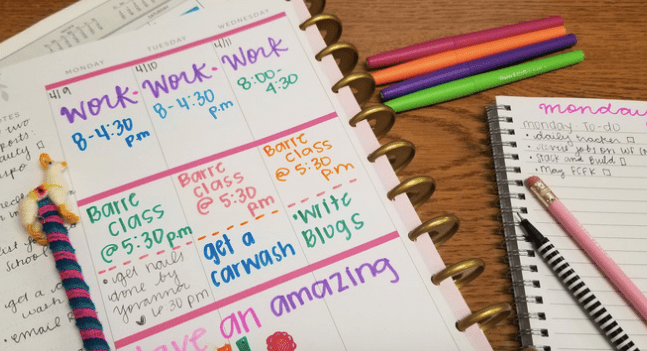 MONDAY
TUESDAY
WEDNESDAY
4/9
4/10
4/11
work-
work-
work
8-4:30
p.m
8-4:30
p.m
8:00-
4:30
NOTES
two
posts:
Barre
class
@ 5:30pm
Barre
class
@ 5:30
pm
Barre
class
@ 5:30
pm
get nails
done by
Yovanna
4:30 pm
get a
carwash
•write
Blogs
school
•get a
wash
•email
have an amazing
monday
monday to-do
• daily tracker
• Stack and Build
• May